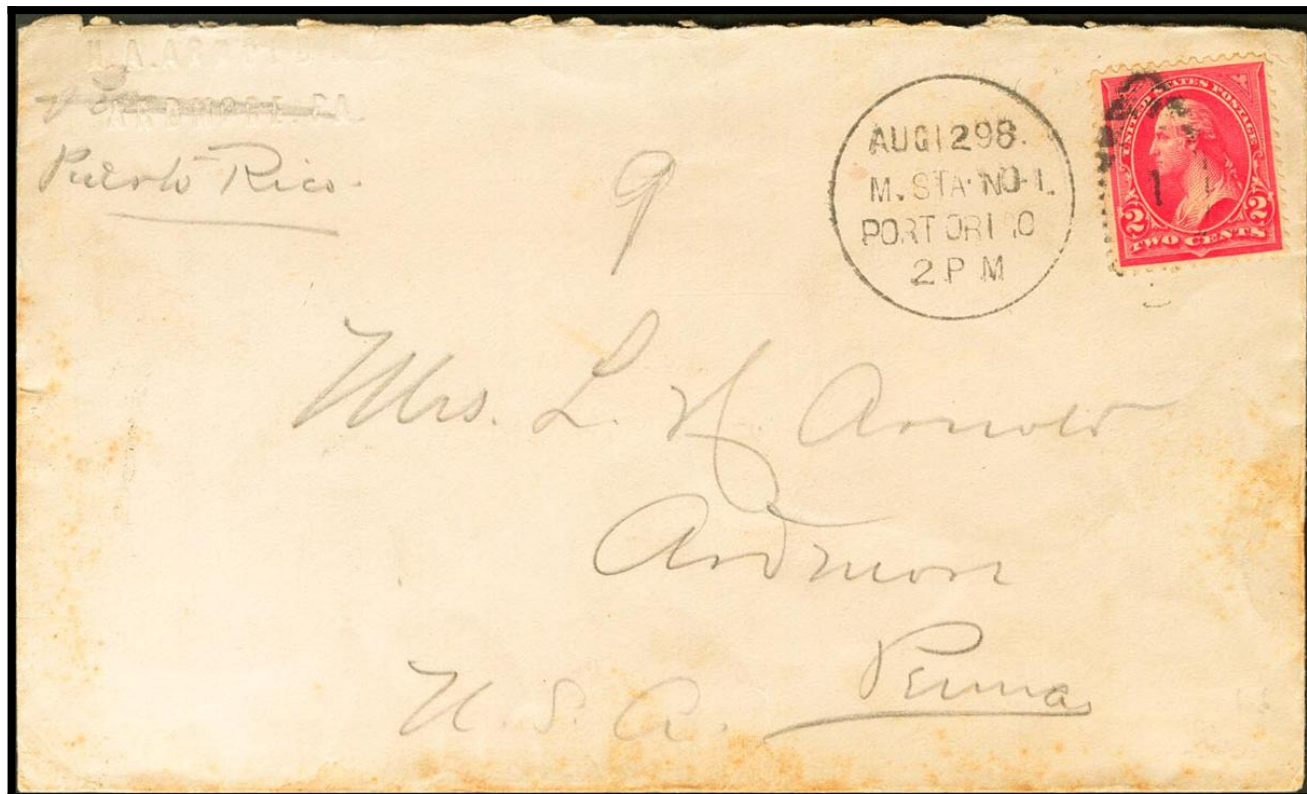 Puerto Rico.
9
AUG 12 98.
M. STA. NO-1.
PORT ORI O
2 P M
UNITED STATES POSTAGE
1
2 2
TWO CENTS
Mrs. L. H. Arnold
Ardmore
Penna
U. S. A.